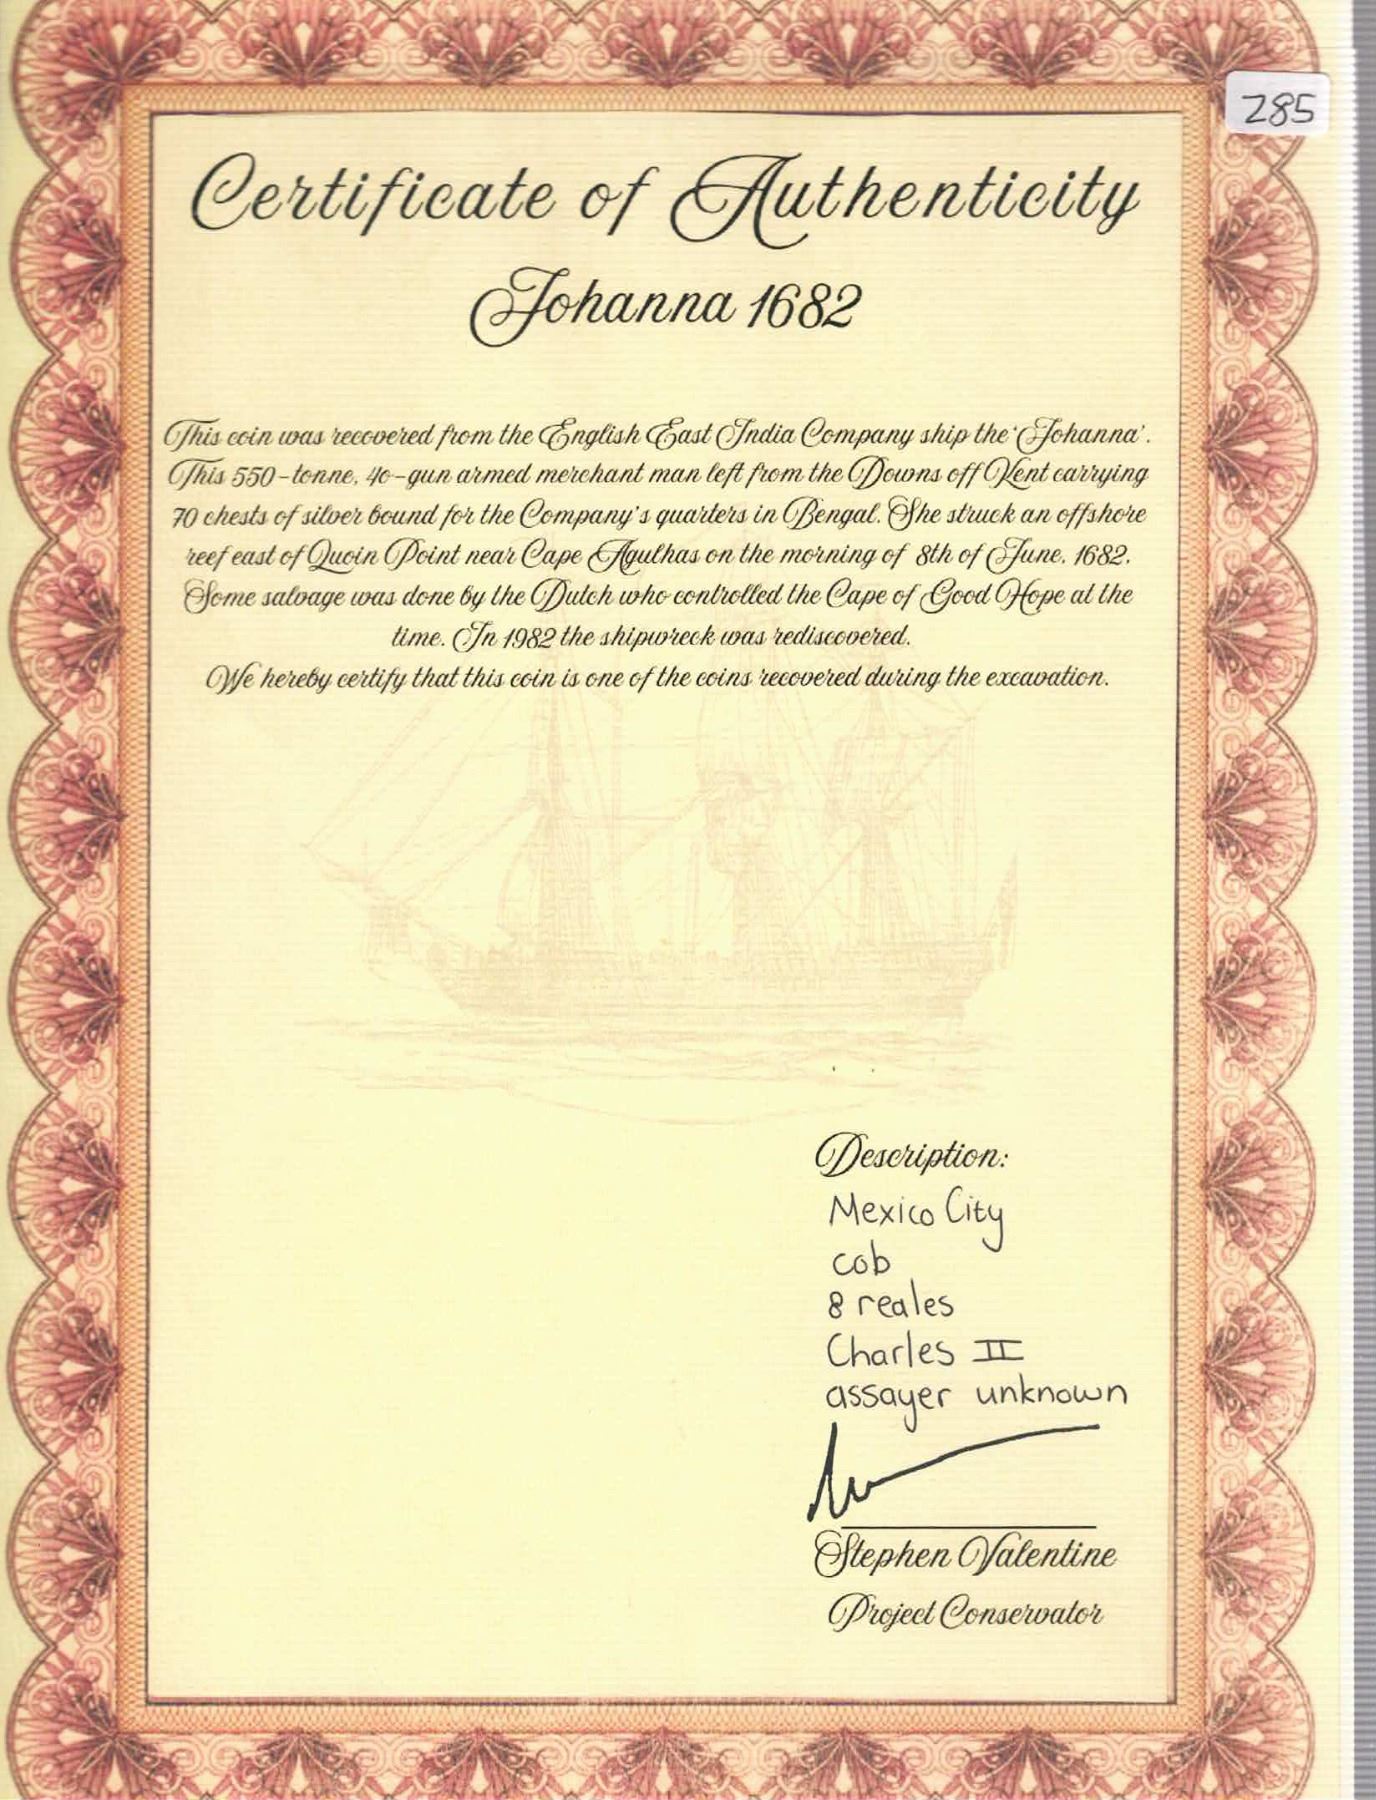 285
Certificate of Authenticity
Johanna 1682
This coin was recovered from the English East India Company ship the 'Johanna'.
This 550-tonne, 40-gun armed merchant man left from the Downs off Kent carrying
70 chests of silver bound for the Company's quarters in Bengal. She struck an offshore
reef east of Quoin Point near Cape Agulhas on the morning of 8th of June, 1682.
Some salvage was done by the Dutch who controlled the Cape of Good Hope at the
time. In 1982 the shipwreck was rediscovered.
We hereby certify that this coin is one of the coins recovered during the excavation.
Description:
Mexico City
cob
8 reales
Charles II
assayer unknown
Stephen Valentine
Project Conservator